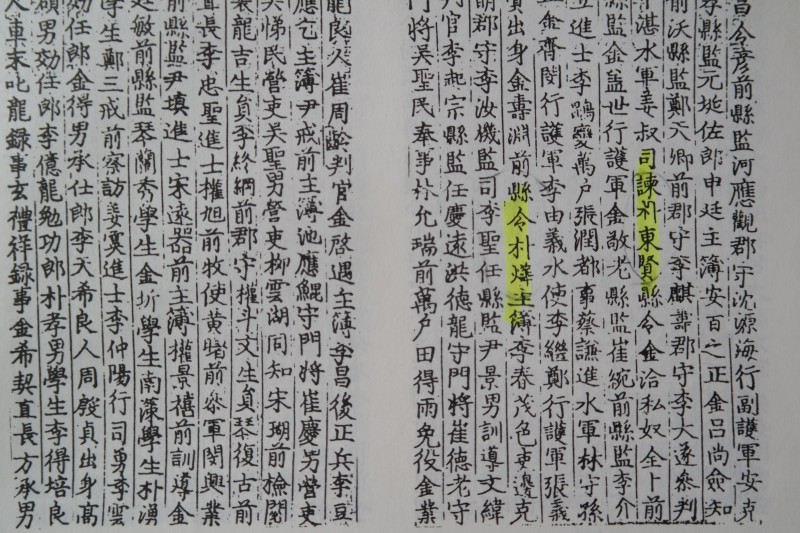 昌令彦前縣監河應觀郡守沈源海行副護軍安克
季縣監元埏佐郎申廷主簿安百之正金呂尚僉知
前沃縣監鄭天卿前郡守李麒壽郡守李大遂參判
湛水軍姜叔司諫朴東賢縣令金洽私奴全卜前
縣監金蓋世行護軍金敬老縣監崔綩前縣監李介
立進士李躋變萬户張潤都事蔡謙進水軍林守孫
金齊閔行護軍李由義水使李繼鄭行護軍張義
貟出身金壽淵前縣令朴燁主簿李春茂色吏邊克
朗郡守李汝機監司李聖任縣監尹景男訓導文緯
判官李起宗縣監任慶遠洪德龍守門將崔德老守
門將吳聖民奉事朴允瑞前萬户田得雨免役金業
龍良人崔周齡判官金啓遇主簿李昌後正兵李豆
應乞主簿尹戒前主簿池應鯤守門將崔慶男營吏
吳悌民營吏吳聖男營吏柳雲湖同知宋瑚前檢閲
裴龍吉生貟李終綱前郡守權斗文生貟琴復古前
直長李忠聖進士權旭前牧使黄前參軍閔興業
前縣監尹塡進士宋遠器前主簿權景禧前訓導金
廷敏前縣監琴蘭秀學生金圻學生南藻學生朴湧
學生鄭三戒前察訪姜霙進士李仲陽行司勇李雲
効任郎金得男承仕郎李天希良人周殷貞出身髙
碩男効任郎李億龍勉功郎朴孝男學生李得培良
人車末叱龍録事玄禮祥録事金希契直長方承男